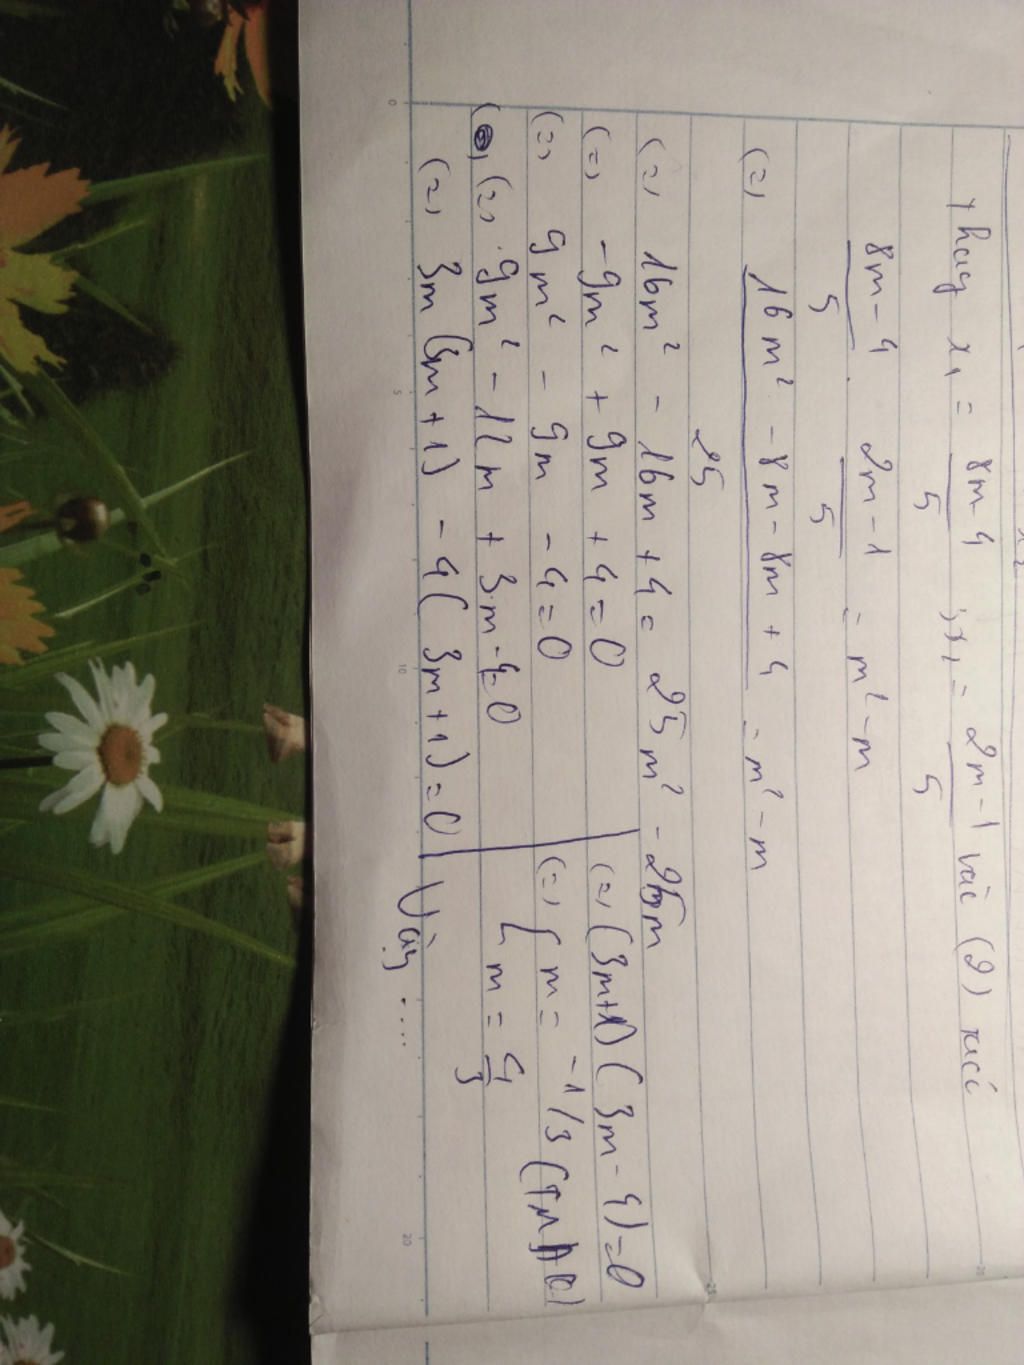 x₂
thay x₁ = 8m-4/5 ; x₂ = 2m-1/5 vào (2) ta có
8m-4/5 . 2m-1/5 = m² - m
(=) 16m² - 8m - 8m + 4/25 = m² - m
(=) 16m² - 16m + 4 = 25m² - 25m
(=) -9m² + 9m + 4 = 0
(=) 9m² - 9m - 4 = 0
(=) 9m² - 12m + 3m - 4 = 0
(=) 3m (3m + 1) - 4 ( 3m + 1) = 0
(=) (3m+1) ( 3m - 4) = 0
(=) { m = -1/3 (TMĐK)
m = 4/3
Vậy ....